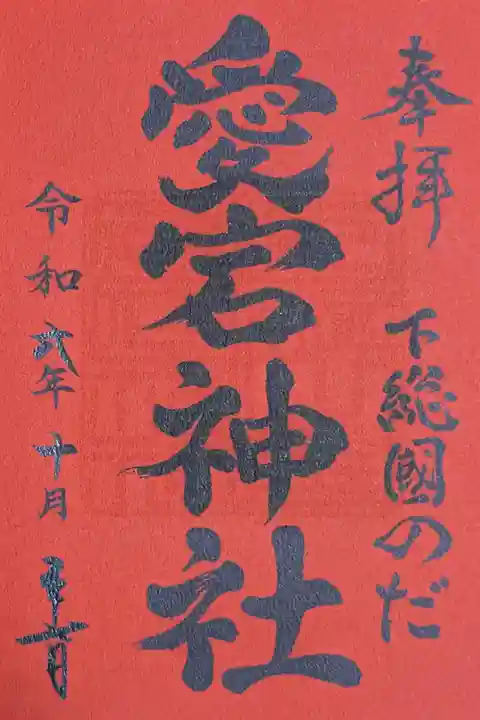 奉拝 下総國のだ
愛宕神社
令和 年 十月